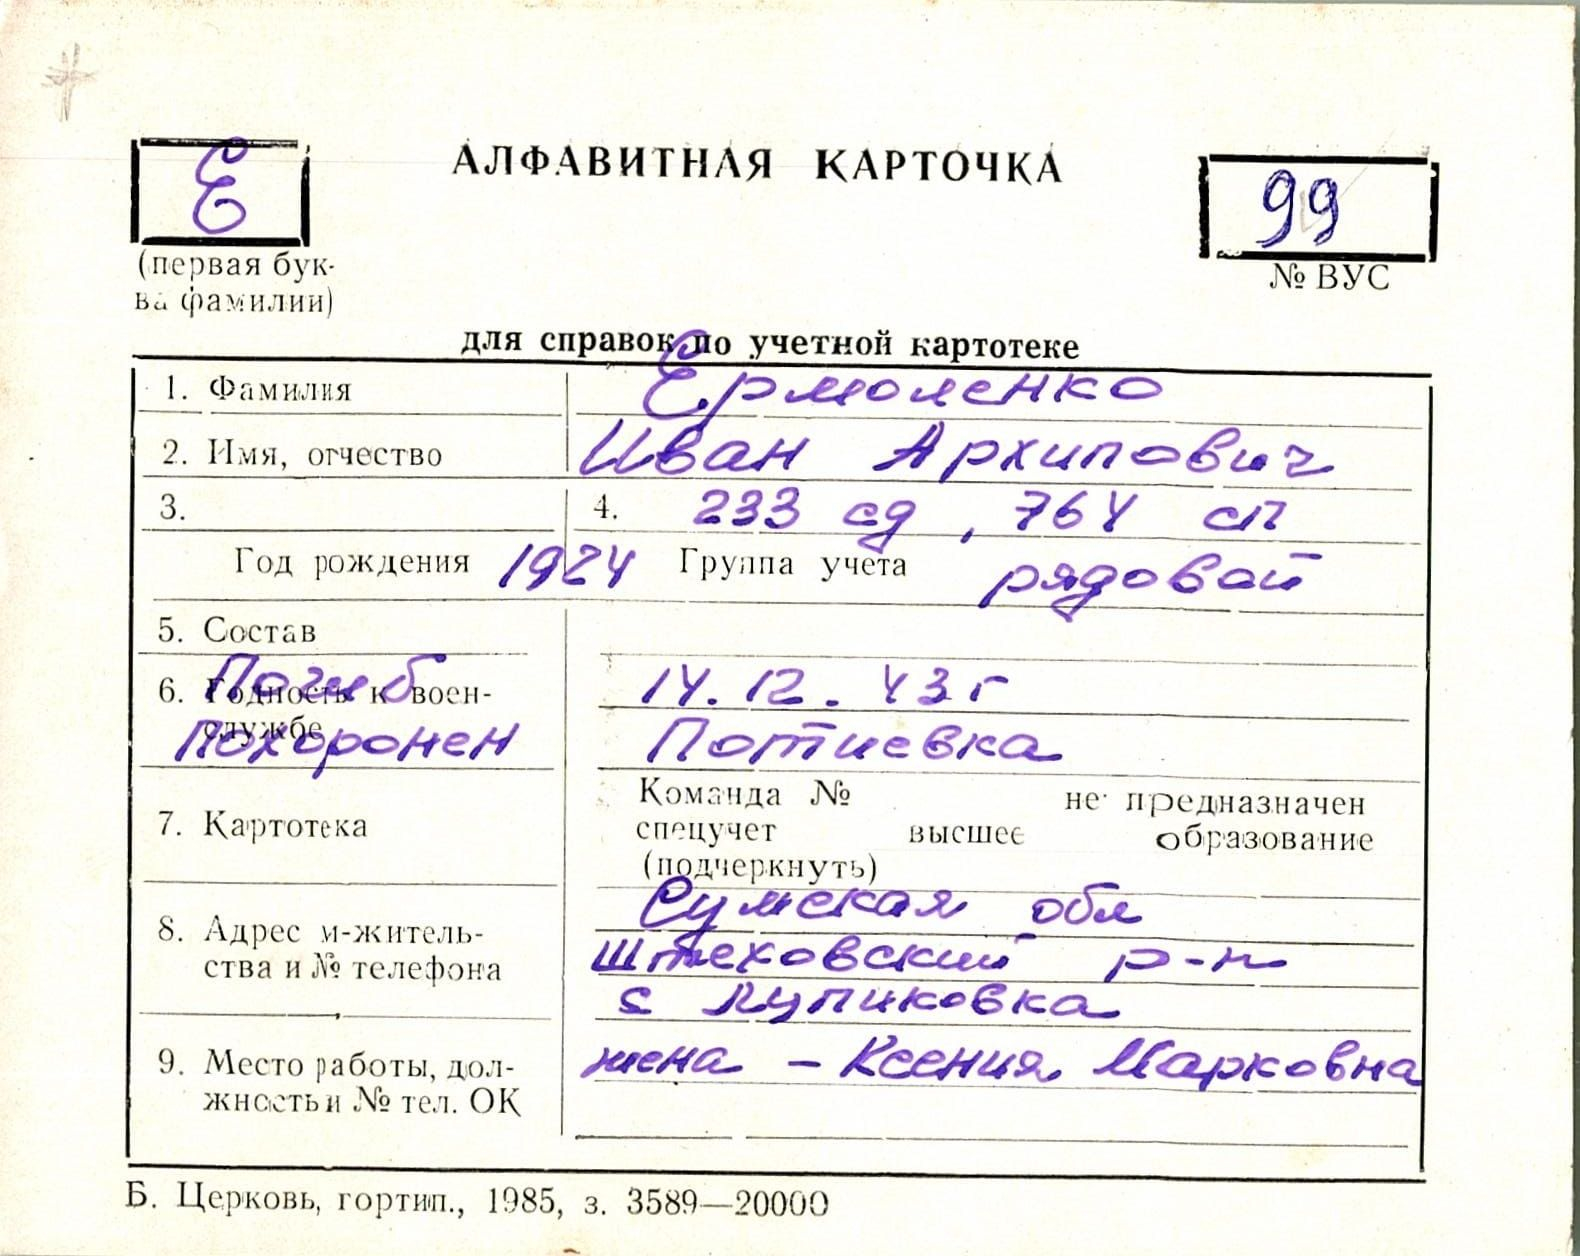 Е
АЛФАВИТНАЯ КАРТОЧКА
99
(первая бук-
ва фамилии)
№ ВУС
для справок по учетной картотеке
1. Фамилия Ермоленко
2. Имя, отчество Иван Архипович
3. 4. 233 сд, 764 сп
Год рождения 1924 Группа учета рядовой
5. Состав
6. Годность к воен-
службе
Погиб 14.12.43 г
Похоронен Потиевка
7. Картотека
Команда № не предназначен
спецучет высшее образование
(подчеркнуть)
8. Адрес м-житель-
ства и № телефона
Сумская обл
Штеховский р-н
с Лупиковка
9. Место работы, дол-
жность и № тел. ОК
жена - Ксения Марковна
Б. Церковь, гортип., 1985, з. 3589—20000